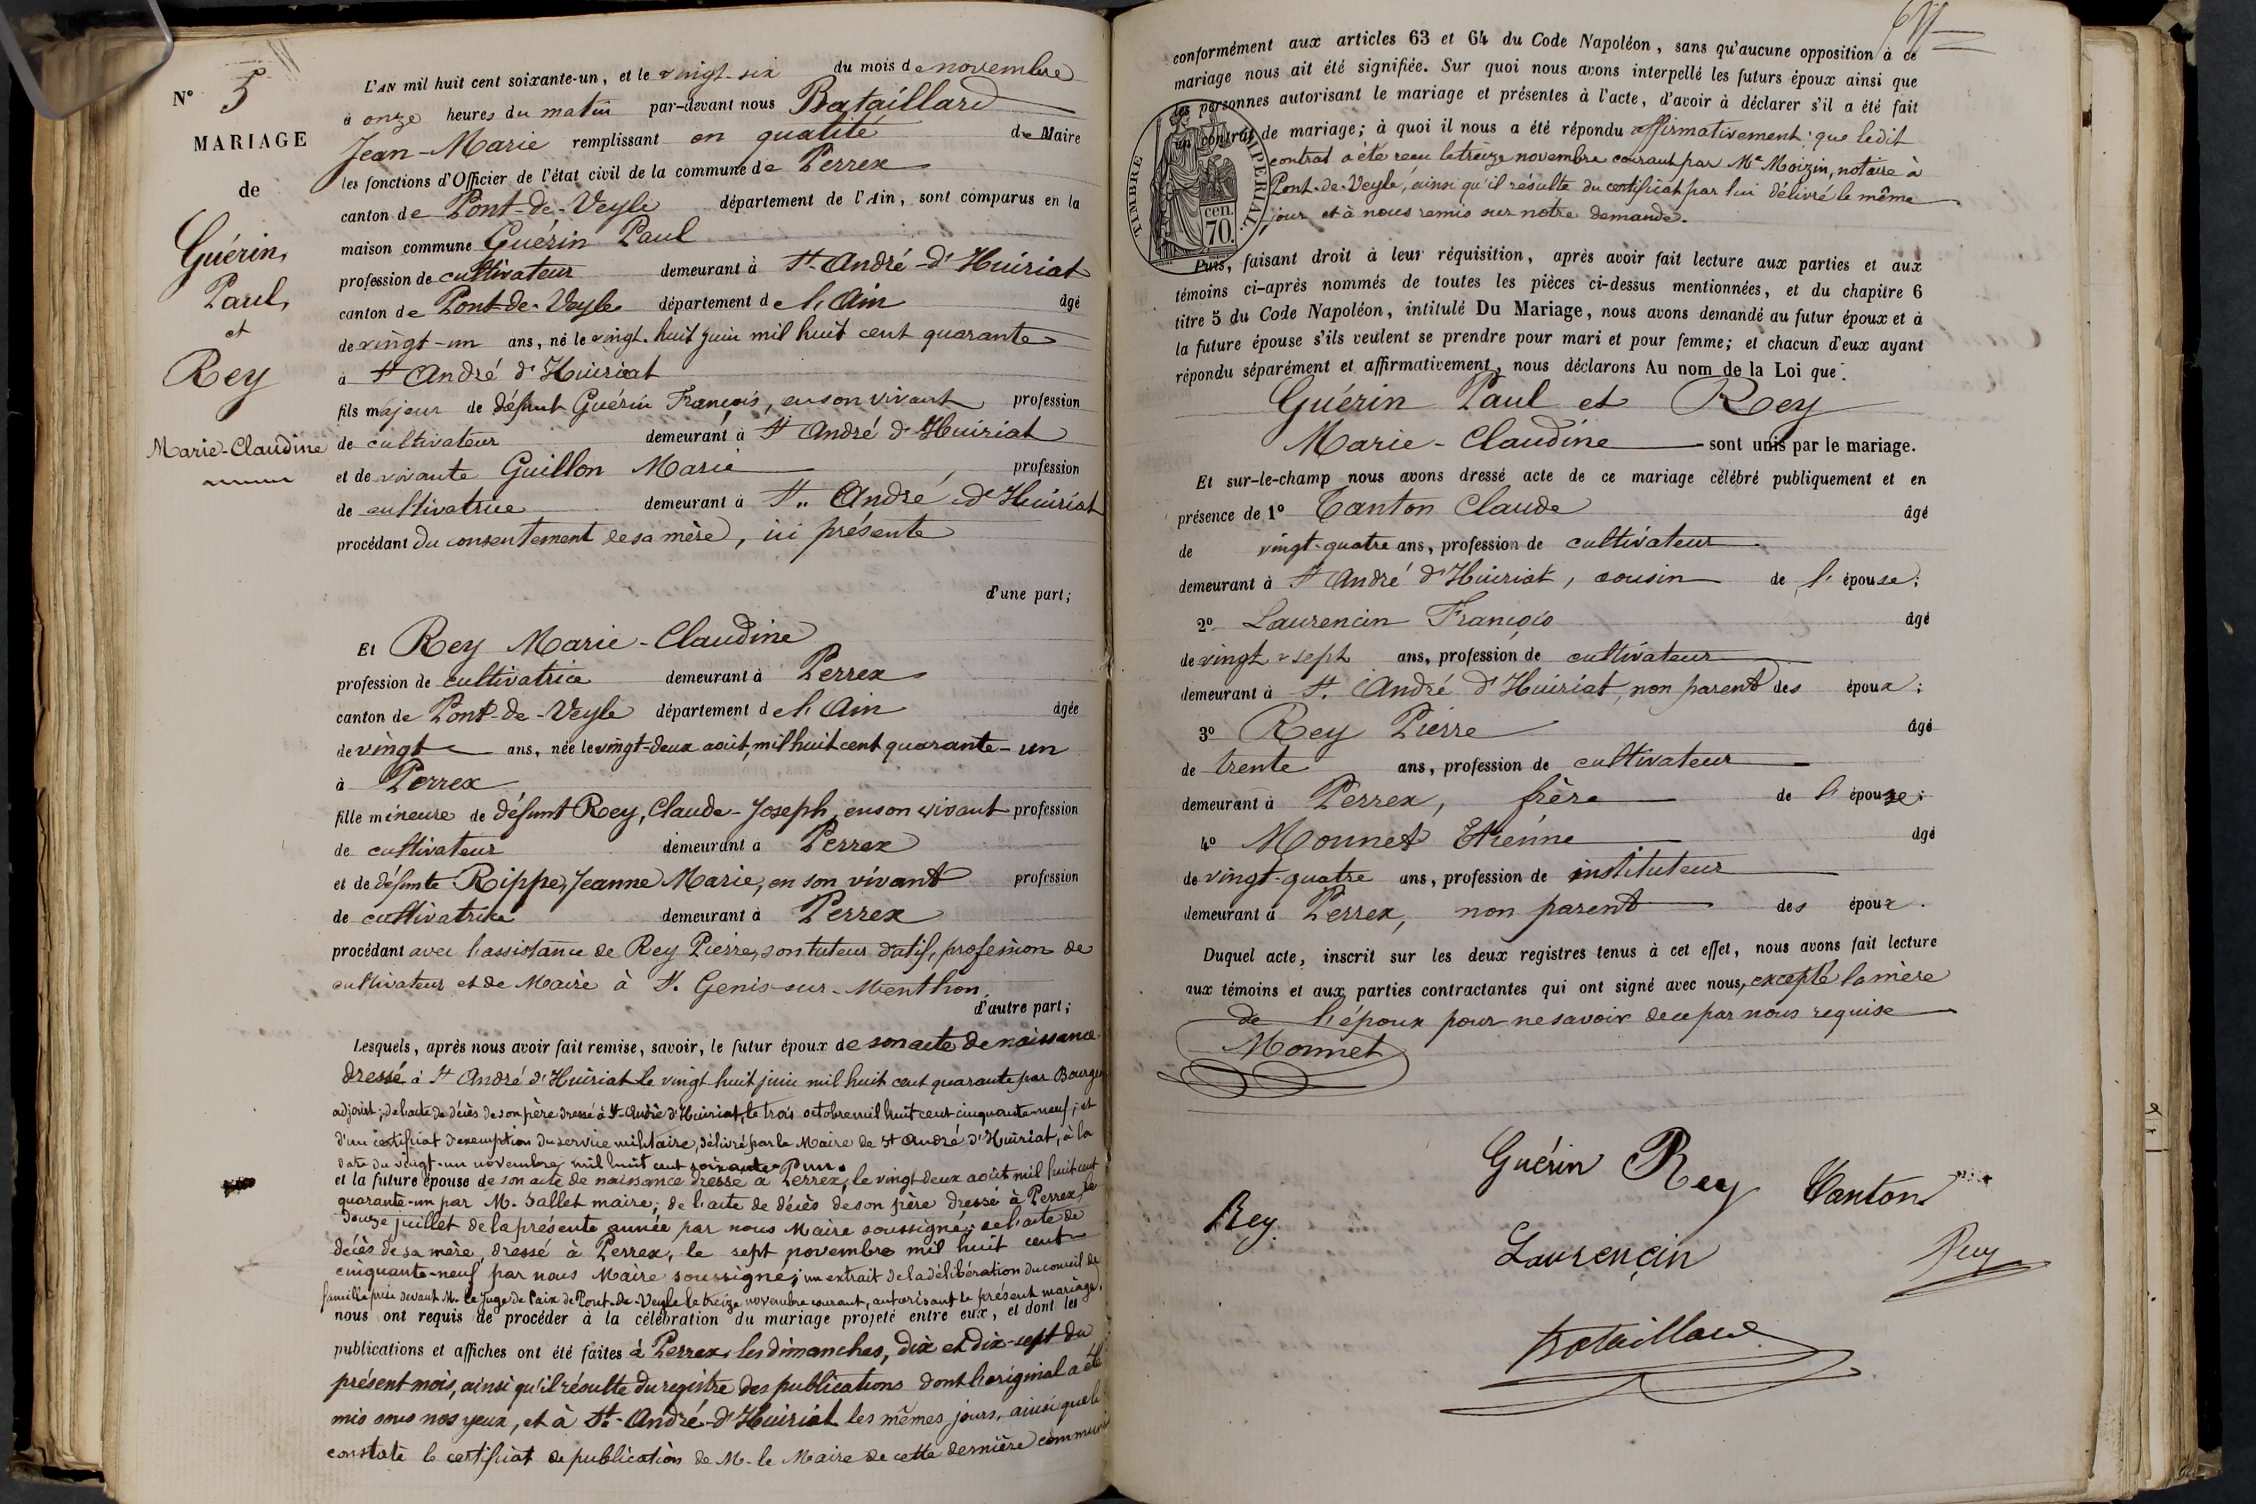 N° 5
MARIAGE
de
Guérin,
Paul,
et
Rey
Marie-Claudine
L'AN mil huit cent soixante-un, et le vingt-six du mois de novembre
à onze heures du matin par-devant nous Bataillard
Jean-Marie remplissant en qualité de Maire
les fonctions d'Officier de l'état civil de la commune de Perrex
canton de Pont-de-Veyle département de l'Ain, sont comparus en la
maison commune Guérin Paul
profession de cultivateur demeurant à St-André-d'Huiriat
canton de Pont-de-Veyle département de l'Ain âgé
de vingt-un ans, né le vingt-huit juin mil huit cent quarante
à St André d'Huiriat
fils majeur de défunt Guérin François, en son vivant profession
de cultivateur demeurant à St André d'Huiriat
et de vivante Guillon Marie profession
de cultivatrice demeurant à St. André d'Huiriat
procédant du consentement de sa mère, ici présente
d'une part;
Et Rey Marie-Claudine
profession de cultivatrice demeurant à Perrex
canton de Pont-de-Veyle département de l'Ain âgée
de vingt ans, née le vingt-deux août, mil huit cent quarante-un
à Perrex
fille mineure de défunt Rey, Claude-Joseph, en son vivant profession
de cultivateur demeurant à Perrex
et de défunte Rippe, Jeanne Marie, en son vivant profession
de cultivatrice demeurant à Perrex
procédant avec l'assistance de Rey Pierre, son tuteur datif, profession de
cultivateur et de Maire à St. Genis-sur-Menthon,
d'autre part;
Lesquels, après nous avoir fait remise, savoir, le futur époux de son acte de naissance
dressé à St André d'Huiriat le vingt huit juin mil huit cent quarante par Bourgeois
adjoint; de l'acte de décès de son père dressé à St-André d'Huiriat, le trois octobre mil huit cent cinquante-neuf; et
d'un certificat d'exemption du service militaire, délivré par le Maire de St André d'Huiriat, à la
date du vingt-un novembre mil huit cent soixante-un.
et la future épouse de son acte de naissance dressé à Perrex, le vingt-deux août mil huit cent
quarante-un par M. Sallet maire; de l'acte de décès de son père dressé à Perrex, le
douze juillet de la présente année par nous Maire soussigné; de l'acte de
décès de sa mère, dressé à Perrex, le sept novembre mil huit cent
cinquante-neuf par nous Maire soussigné; un extrait de la délibération du conseil de
famille prise devant M. le Juge de Paix de Pont-de-Veyle le treize novembre courant, autorisant le présent mariage,
nous ont requis de procéder à la célébration du mariage projeté entre eux, et dont les
publications et affiches ont été faites à Perrex, les dimanches, dix et dix-sept du
présent mois, ainsi qu'il résulte du registre des publications dont l'original a été
mis sous nos yeux, et à St.-André-d'Huiriat les mêmes jours, ainsi que le
constate le certificat de publication de M. le Maire de cette dernière commune
conformément aux articles 63 et 64 du Code Napoléon, sans qu'aucune opposition à ce
mariage nous ait été signifiée. Sur quoi nous avons interpellé les futurs époux ainsi que
les personnes autorisant le mariage et présentes à l'acte, d'avoir à déclarer s'il a été fait
un contrat de mariage; à quoi il nous a été répondu affirmativement; que le dit
contrat a été reçu le treize novembre courant par Me Moizin, notaire à
Pont-de-Veyle, ainsi qu'il résulte du certificat par lui délivré le même
jour et à nous remis sur notre demande.
TIMBRE IMPERIAL
cen.
70.
Puis, faisant droit à leur réquisition, après avoir fait lecture aux parties et aux
témoins ci-après nommés de toutes les pièces ci-dessus mentionnées, et du chapitre 6
titre 5 du Code Napoléon, intitulé Du Mariage, nous avons demandé au futur époux et à
la future épouse s'ils veulent se prendre pour mari et pour femme; et chacun d'eux ayant
répondu séparément et affirmativement, nous déclarons Au nom de la Loi que
Guérin Paul et Rey
Marie-Claudine sont unis par le mariage.
Et sur-le-champ nous avons dressé acte de ce mariage célébré publiquement et en
présence de 1° Tanton Claude âgé
de vingt-quatre ans, profession de cultivateur
demeurant à St André d'Huiriat, cousin de l'épouse;
2° Laurencin François âgé
de vingt-sept ans, profession de cultivateur
demeurant à St. André d'Huiriat, non parent des époux;
3° Rey Pierre âgé
de trente ans, profession de cultivateur
demeurant à Perrex, frère de l'épouse;
4° Monnet Etienne âgé
de vingt-quatre ans, profession de instituteur
demeurant à Perrex, non parent des époux.
Duquel acte, inscrit sur les deux registres tenus à cet effet, nous avons fait lecture
aux témoins et aux parties contractantes qui ont signé avec nous, excepté la mère
de l'époux pour ne savoir de ce par nous requise
Monnet
Guérin Rey Tanton
Rey
Laurencin Rey
Bataillard